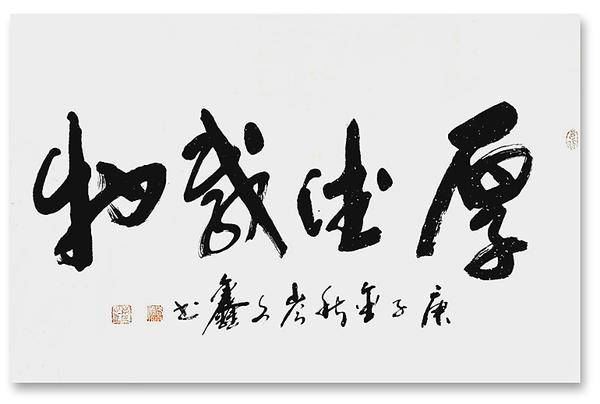 厚德载物
庚子金秋 鑫书